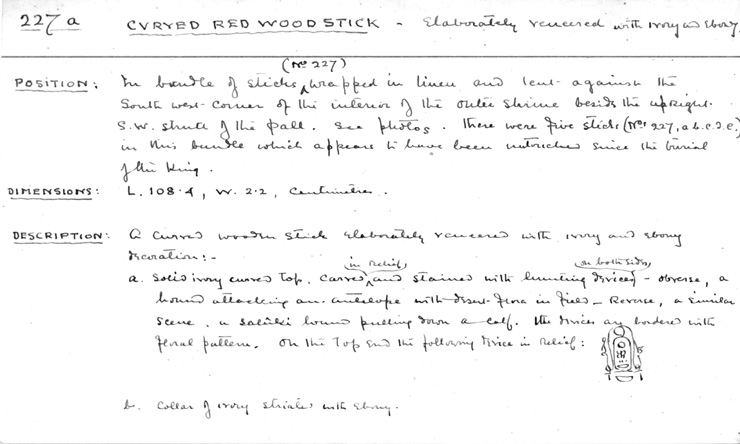 227a CURVED RED WOOD STICK - Elaborately veneered with ivory and Ebony.
(No 227)
POSITION: In bundle of sticks, wrapped in linen and lent against the
South west corner of the interior of the outer shrine beside the upright
S.W. strut of the pall. See photos. There were five sticks (Nos 227, a.b.c.d.e.)
in this bundle which appears to have been untouched since the burial
of the King.
DIMENSIONS: L. 108.4, W. 2.2, Centimetres.
DESCRIPTION: A curved wooden stick elaborately veneered with ivory and ebony
decoration:-
in relief on both sides
a. Solid ivory curved top, carved and stained with hunting devices - obverse, a
hound attacking an antelope with desert flora in field - Reverse, a similar
scene, a saluki hound pulling down a calf. The devices are bordered with
floral pattern. On the Top end the following device in relief:
b. Collar of ivory striated with Ebony.